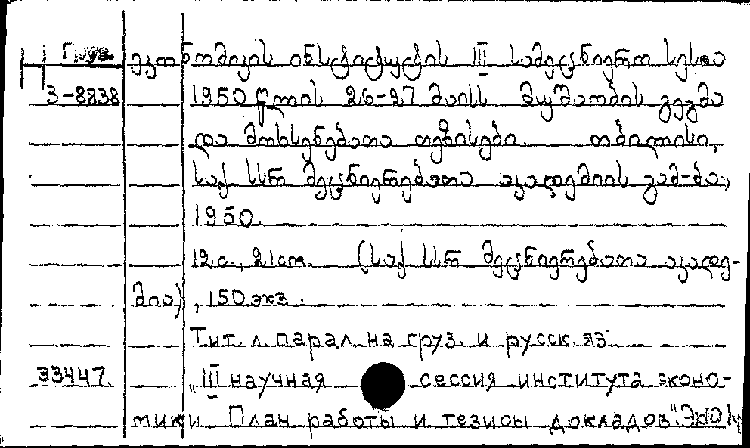 Груз. ეკონომიკის ინსტიტუტის III სამეცნიერო სესია
3-8838 1950 წლის 26-27 მაისს მუშაობის გეგმა
და მოხსენებათა თეზისები. თბილისი,
საქ. სსრ მეცნიერებათა აკადემიის გამ-ბა,
1950.
12 с., 21 cm. (საქ. სსრ მეცნიერებათა აკადე-
მია), 150 экз.
Тит. л. парал. на груз. и русск. яз.
33447. „III научная сессия института эконо-
мики. План работы и тезисы докладов"